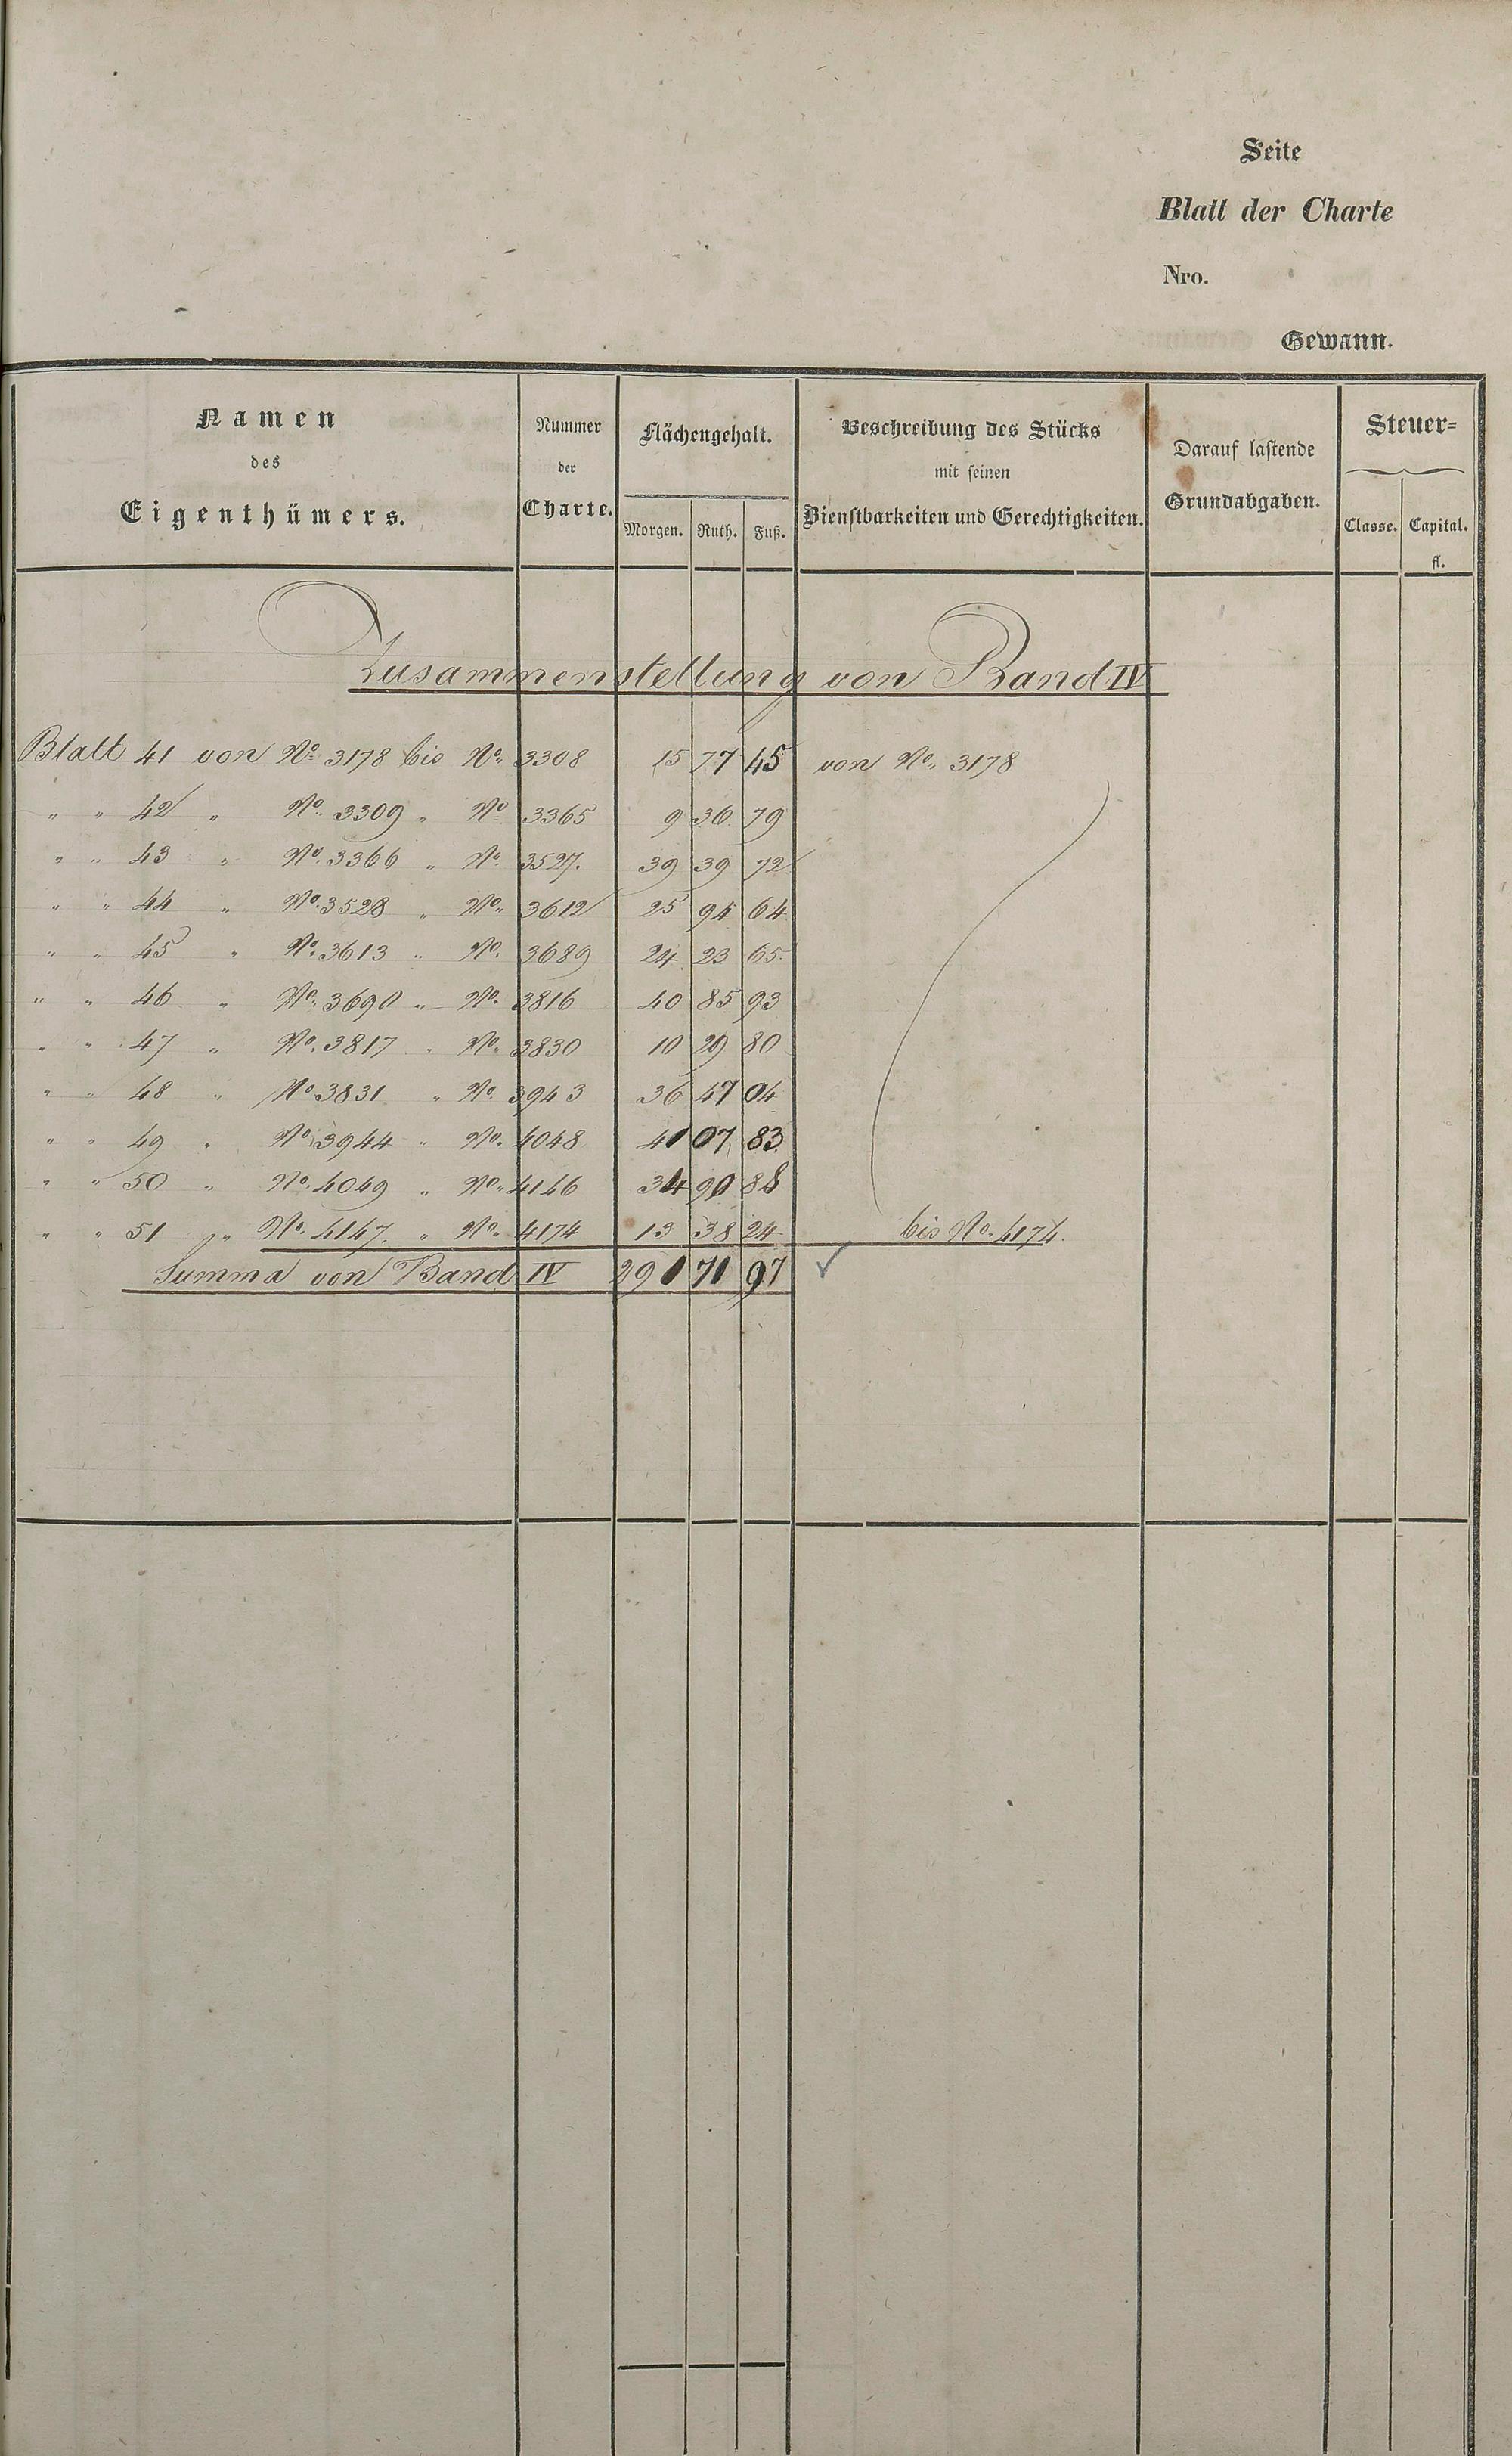 Seite
Blatt der Charte
Nro.
Gewann.
Namen des Eigenthümers.
Nummer der Charte.
Flächengehalt.
Morgen. Ruth. Fuß.
Beschreibung des Stücks mit seinen Dienstbarkeiten und Gerechtigkeiten.
Darauf lastende Grundabgaben.
Steuer=
Classe. Capital.
fl.
Zusammenstellung von Band IV
Blatt 41 von No. 3178 bis No. 3308 15 77 45 von No. 3178
" " 42 " No. 3309 " No. 3365 9 36 79
" " 43 " No. 3366 " No. 3527. 39 39 72
" " 44 " No. 3528 " No. 3612 25 94 64
" " 45 " No. 3613 " No. 3689 24 23 65
" " 46 " No. 3690 " No. 3816 40 85 93
" " 47 " No. 3817 " No. 3830 10 29 80
" " 48 " No. 3831 " No. 3943 36 47 04
" " 49 " No. 3944 " No. 4048 41 07 83
" " 50 " No. 4049 " No. 4146 34 90 88
" " 51 " No. 4147. " No. 4174 13 38 24 bis No. 4174.
Summa von Band IV 291 71 97 ✓